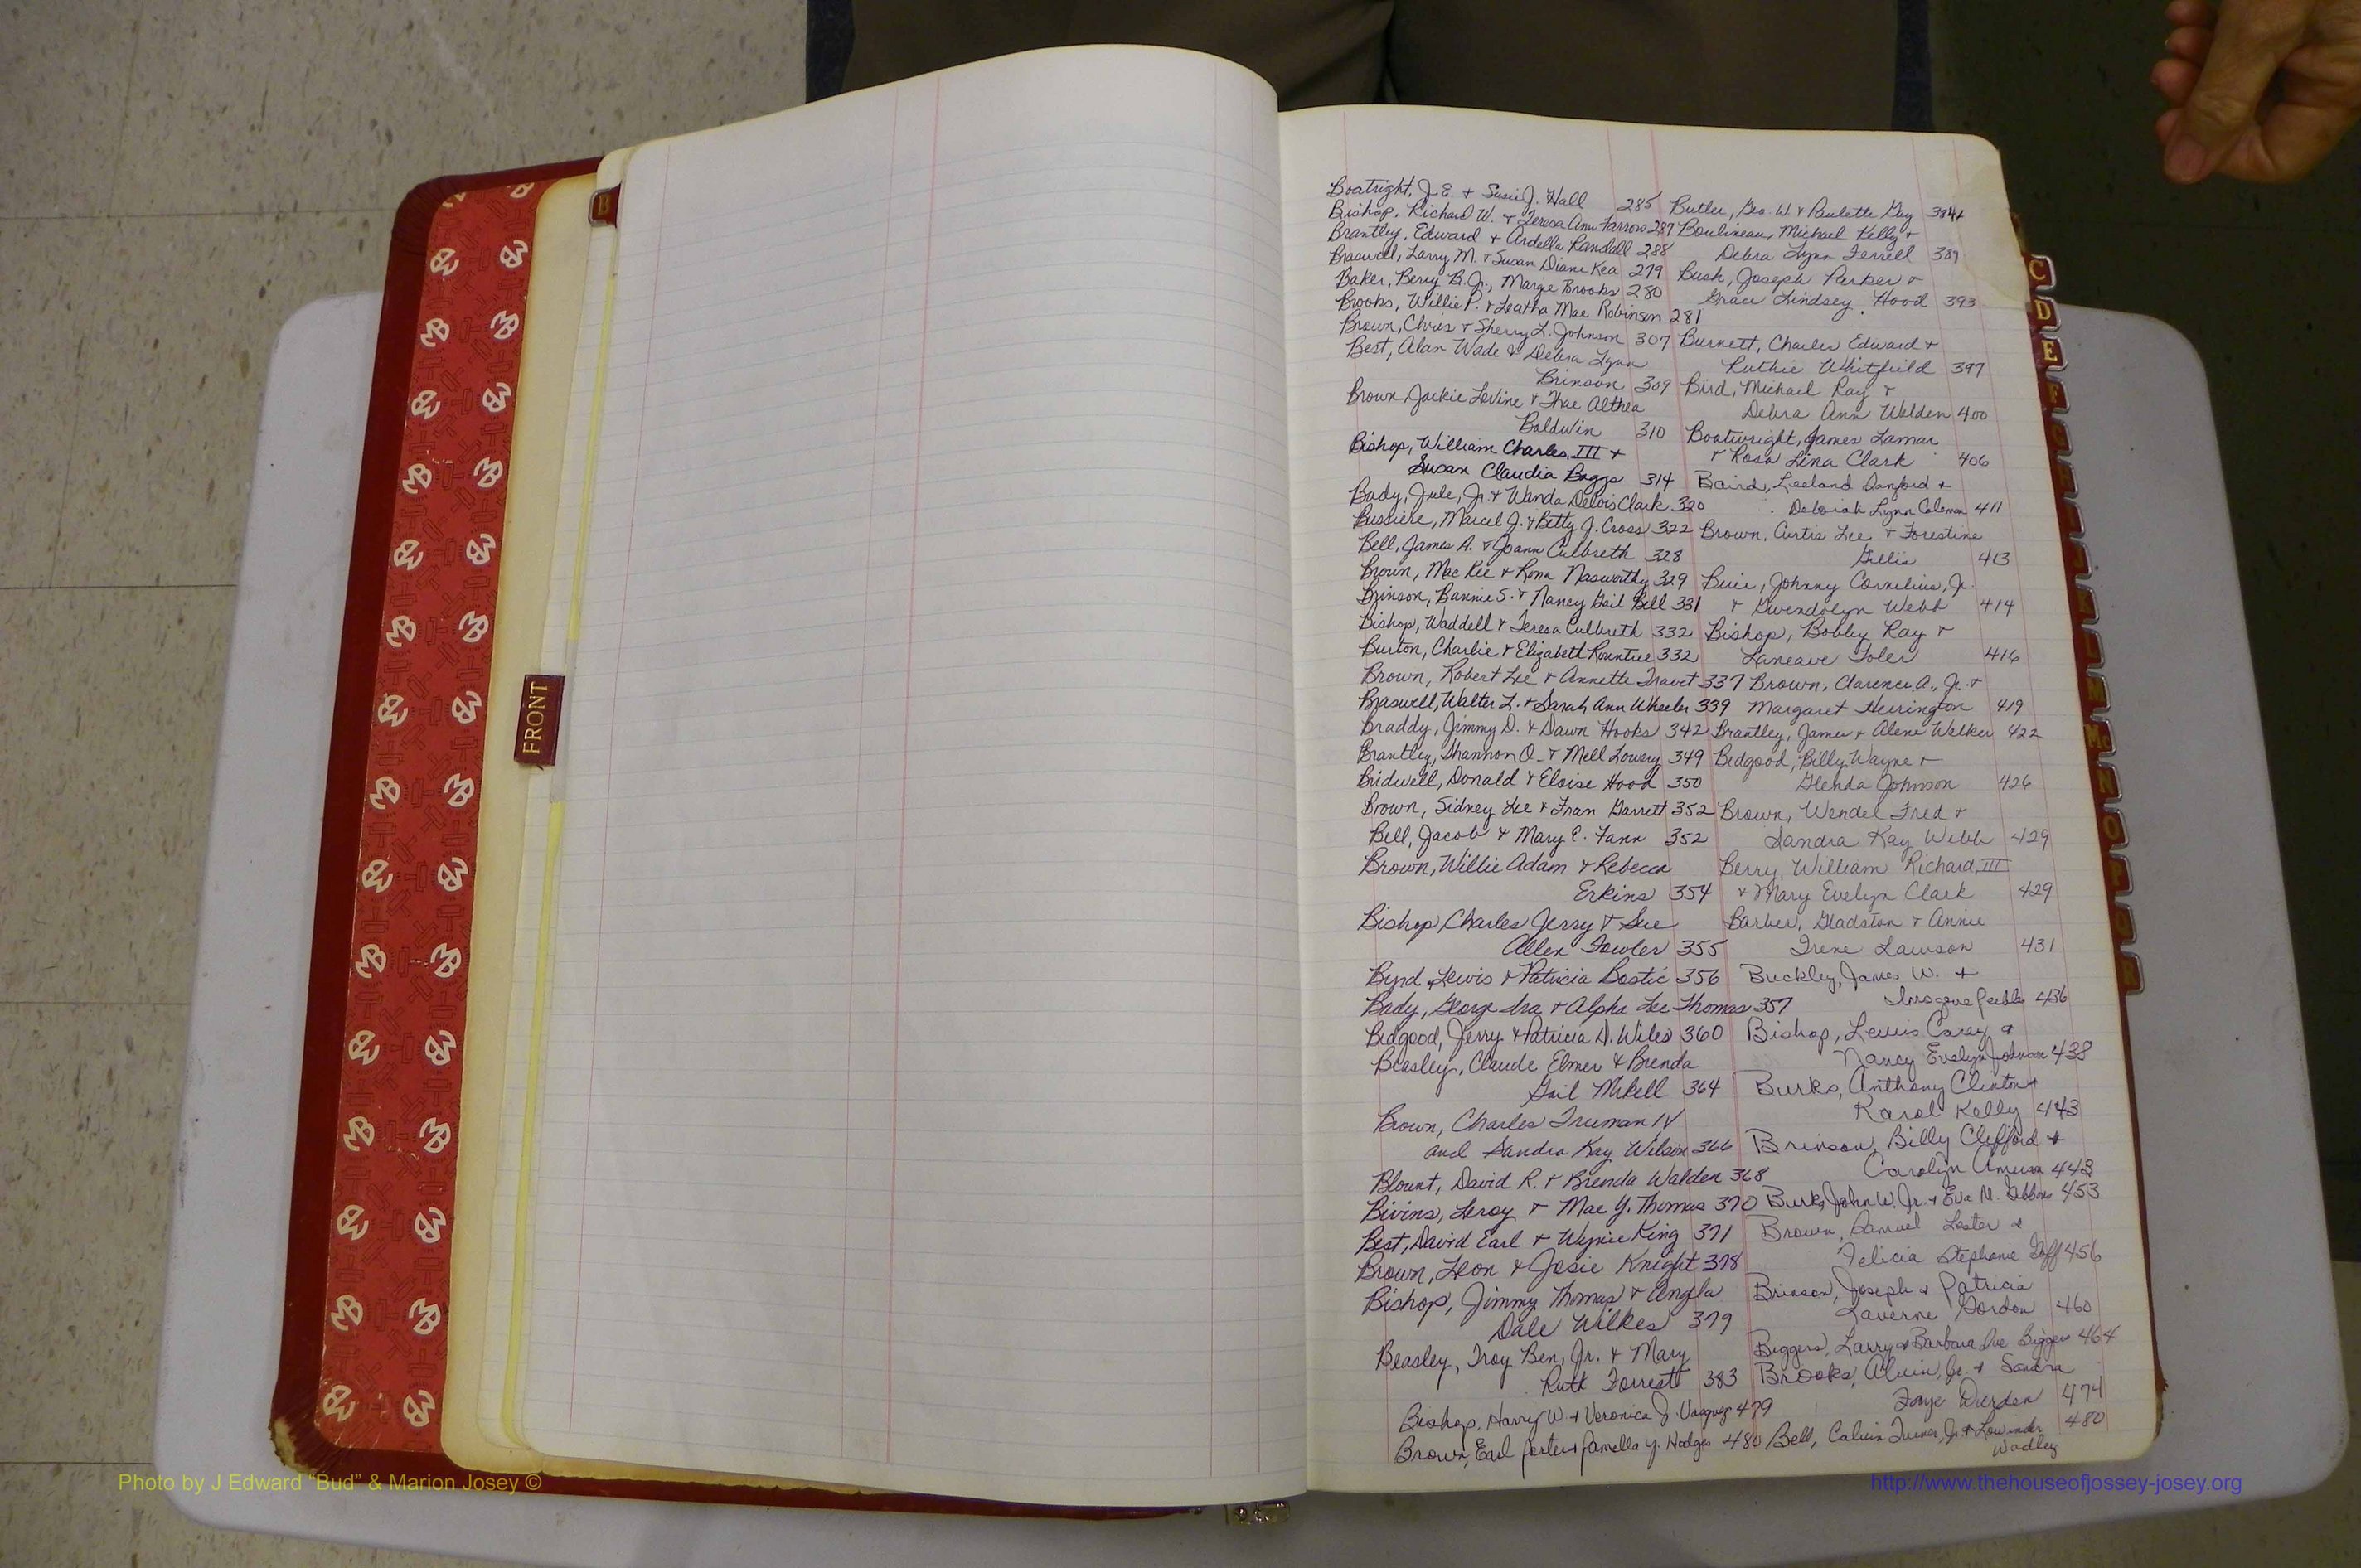 B
FRONT
Boatright, J.E. + Susie J. Hall 285
Bishop, Richard W. + Teresa Ann Farrow 287
Brantley, Edward + Ardella Randall 288
Braswell, Larry M. + Susan Diane Kea 279
Baker, Berry B. Jr., Margie Brooks 280
Brooks, Willie P. + Leatha Mae Robinson 281
Brown, Chris + Sherry L. Johnson 307
Best, Alan Wade + Debra Lynn
Brinson 309
Brown, Jackie Levine + Thae Althea
Baldwin 310
Bishop, William Charles, III +
Susan Claudia Boggs 314
Bady, Jule, Jr. + Wanda Delois Clark 320
Bussiere, Marcel J. + Betty J. Cross 322
Bell, James A. + Joann Culbreth 328
Brown, Mac Kee + Rona Nasworthy 329
Brinson, Bannie S. + Nancy Gail Bell 331
Bishop, Waddell + Teresa Culbreth 332
Burton, Charlie + Elizabeth Rountree 332
Brown, Robert Lee + Annette Travet 337
Braswell, Walter L. + Sarah Ann Wheeler 339
Braddy, Jimmy D. + Dawn Hooks 342
Brantley, Shannon O. + Mell Lowery 349
Bridwell, Donald + Eloise Hood 350
Brown, Sidney Lee + Fran Garrett 352
Bell, Jacob + Mary E. Fann 352
Brown, Willie Adam + Rebecca
Erkins 354
Bishop, Charles Jerry + Sue
Allen Fowler 355
Byrd, Lewis + Patricia Bostic 356
Bady, George Ira + Alpha Lee Thomas 357
Bedgood, Jerry + Patricia D. Wiles 360
Beasley, Claude Elmer + Brenda
Gail Mikell 364
Brown, Charles Truman IV
and Sandra Kay Wilson 366
Blount, David R. + Brenda Walden 368
Bivins, Leroy + Mae Y. Thomas 370
Best, David Earl + Wynie King 371
Brown, Leon + Josie Knight 378
Bishop, Jimmy Thomas + Angela
Dale Wilkes 379
Beasley, Troy Ben, Jr. + Mary
Ruth Forrest 383
Bishop, Harry W. + Veronica J. Vasquez 479
Brown, Earl Porter + Pamella Y. Hodges 480
Butler, Geo. W. + Paulette Gay 384
Boulineau, Michael Kelly +
Debra Lynn Ferrell 389
Bush, Joseph Parker +
Grace Lindsey Hood 393
Burnett, Charles Edward +
Ruthie Whitfield 397
Bird, Michael Ray +
Debra Ann Welden 400
Boatwright, James Lamar
+ Rosa Lina Clark 406
Baird, Leeland Sanford +
Deborah Lynn Coleman 411
Brown, Curtis Lee + Forestine
Gillis 413
Buie, Johnny Cornelius, Jr.
+ Gwendolyn Webb 414
Bishop, Bobby Ray +
Laneave Toler 416
Brown, Clarence A., Jr. +
Margaret Herrington 419
Brantley, James + Alene Walker 422
Bedgood, Billy Wayne +
Glenda Johnson 426
Brown, Wendel Fred +
Sandra Kay Webb 429
Berry, William Richard, III
+ Mary Evelyn Clark 429
Barber, Gladston + Annie
Irene Lawson 431
Buckley, James W. +
Imogene Peebles 436
Bishop, Lewis Carey +
Nancy Evelyn Johnson 438
Burks, Anthony Clinton +
Karol Kelly 443
Brinson, Billy Clifford +
Carolyn 443
Burks, John W. Jr. + Eva M. Gibbons 453
Brown, Samuel Lester +
Felicia Stephanie Goff 456
Brinson, Joseph + Patricia
Laverne Gordon 460
Biggers, Larry + Barbara Biggers 464
Brooks, Alvin, Jr. + Sandra
Faye Durden 474
Bell, Calvin Turner, Jr. + 480
Wadley
C
D
E
F
M
Mc
N
O
P
Photo by J Edward “Bud” & Marion Josey ©
http://www.thehouseofjossey-josey.org